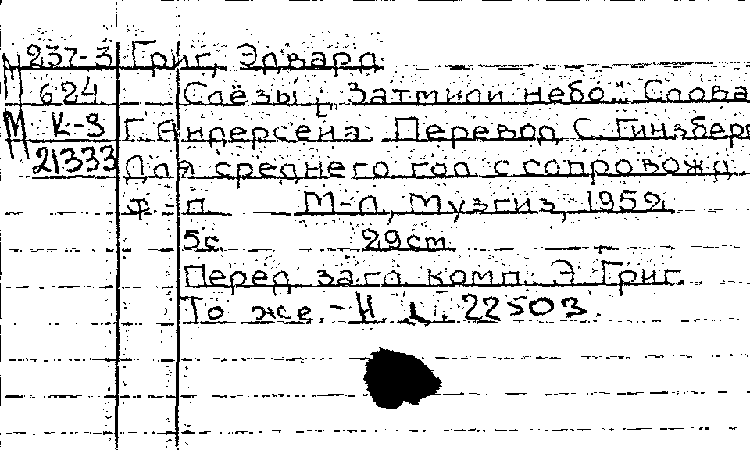 М 237-3 Григ, Эдвард.
624 Слёзы: „Затмили небо..." Слова
М К-9 Г. Андерсена. Перевод С. Гинзберг
21333 Для среднего гол с сопровожд.
ф-п. М-Л, Музгиз, 1952.
5с. 29cm.
Перед загл. комп. Э. Григ.
То же. - Н 22503.